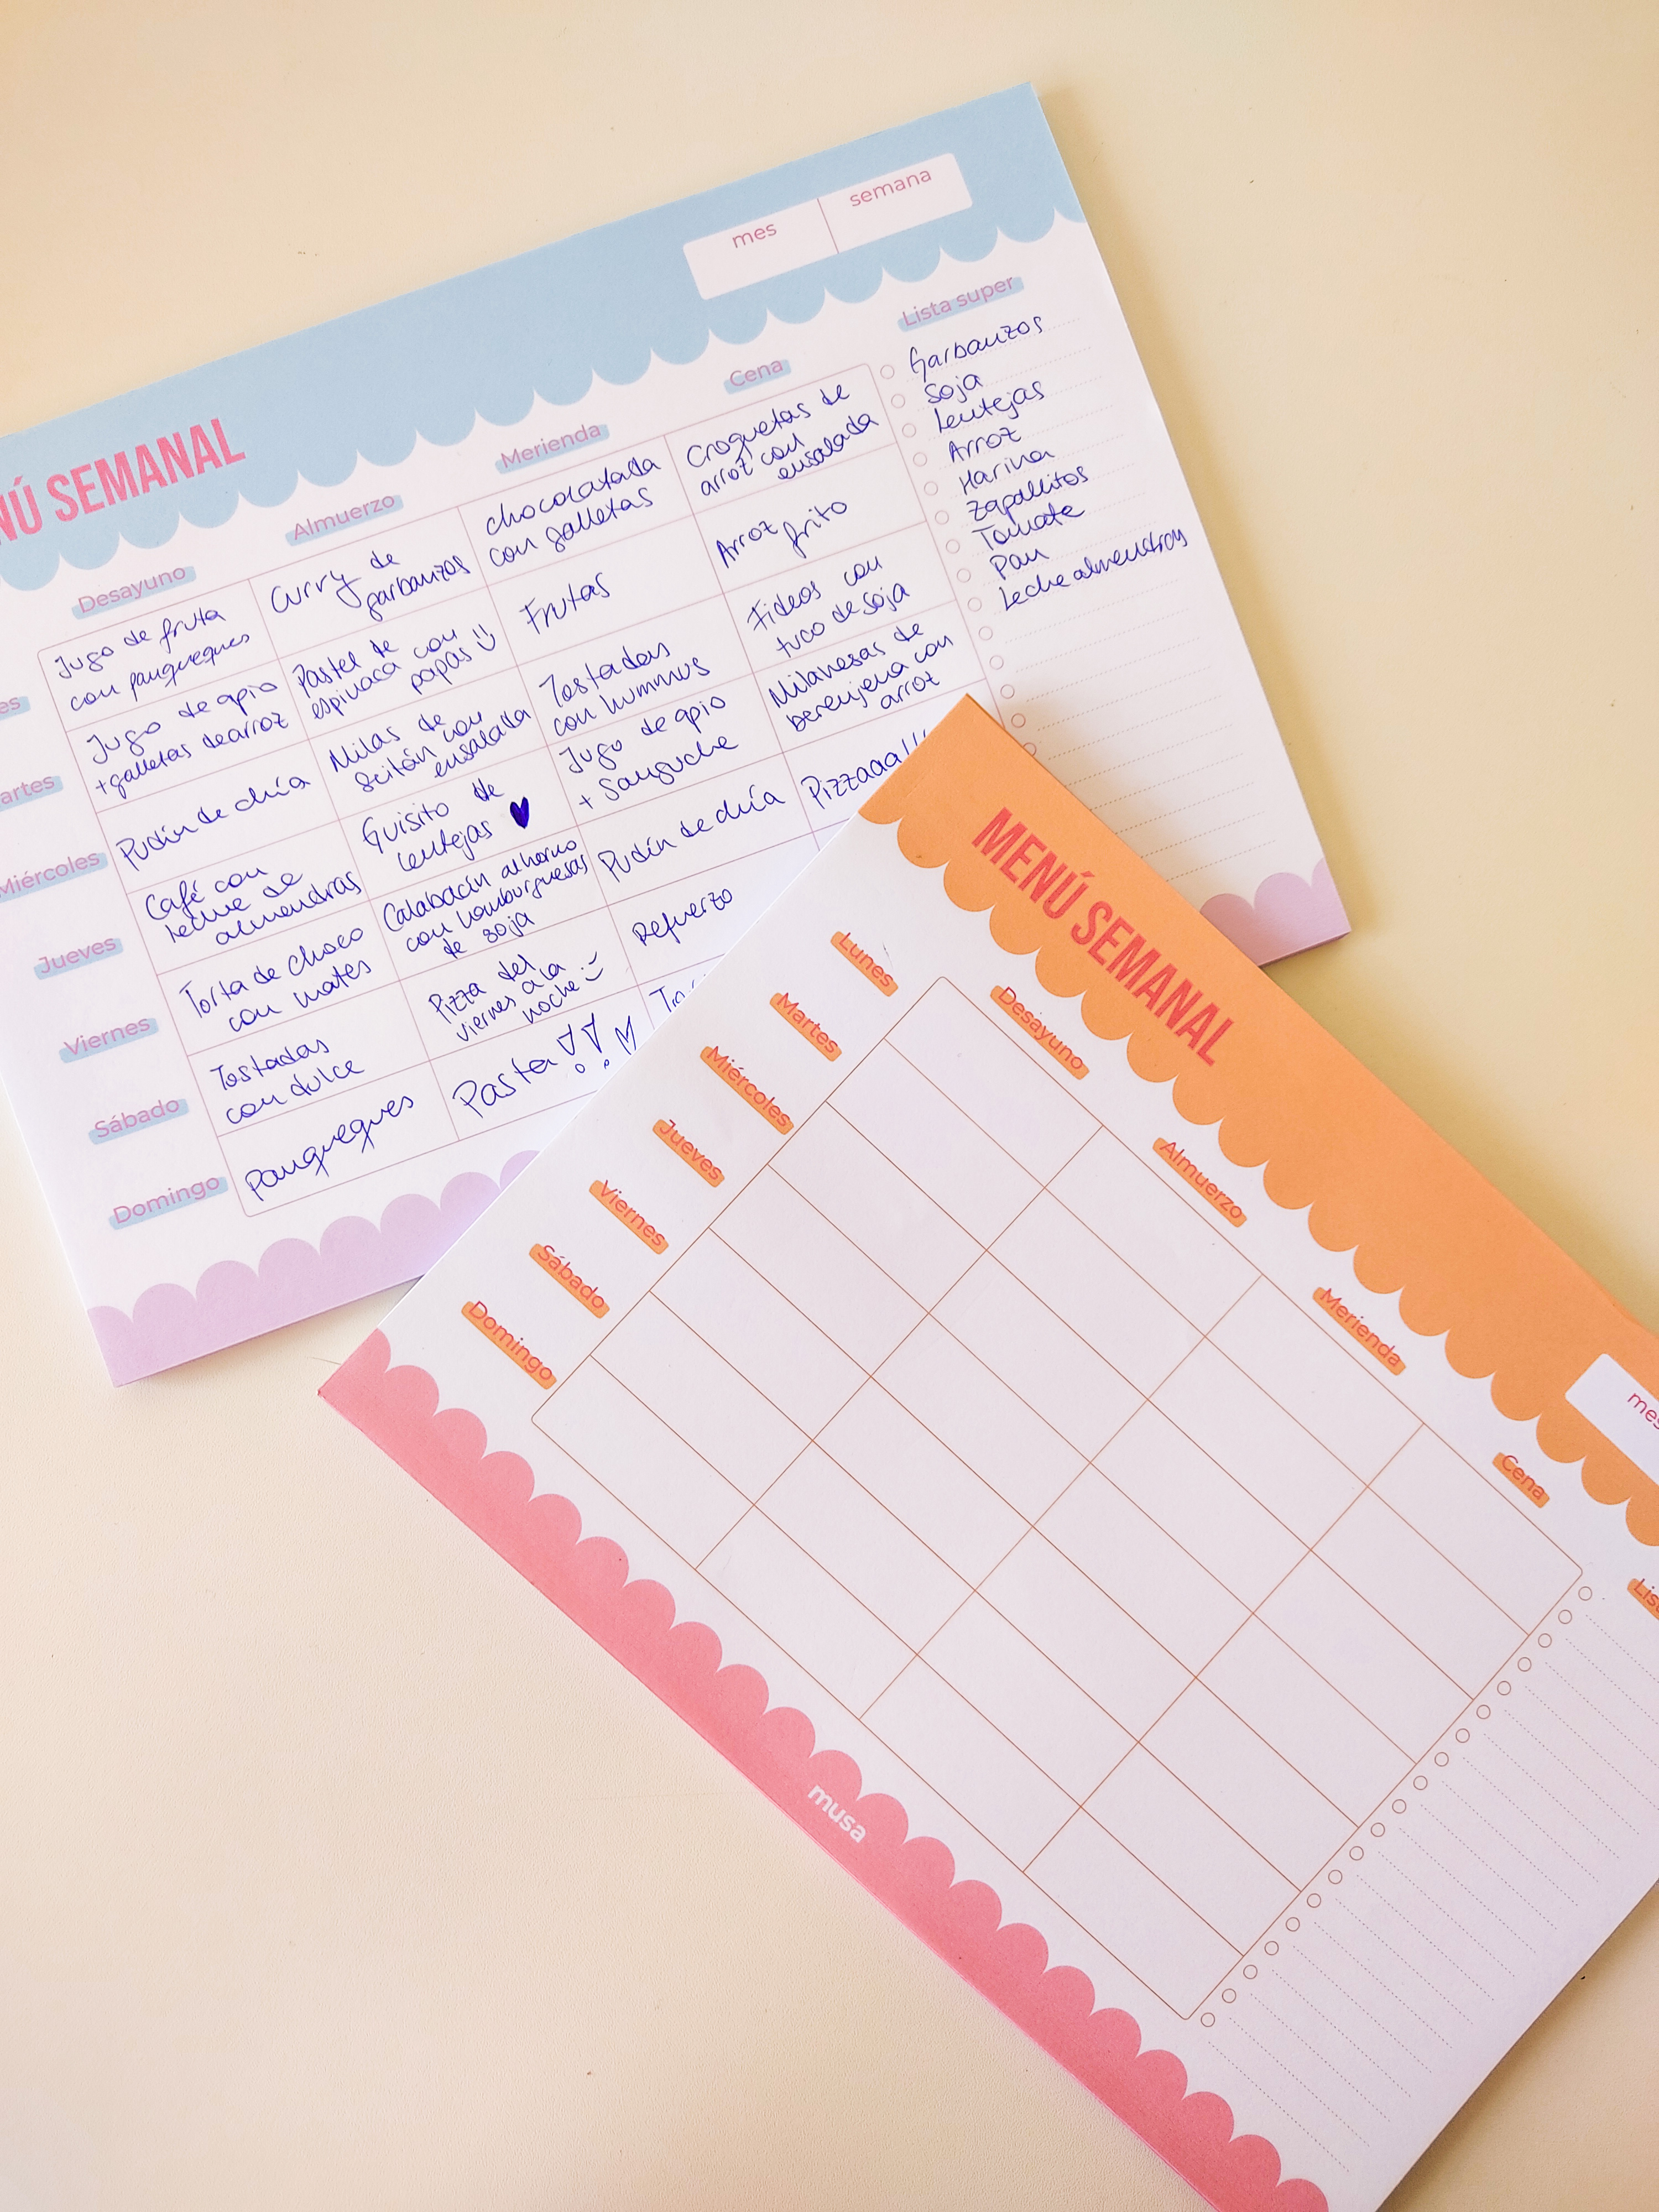 mes semana
NÚ SEMANAL
Desayuno Almuerzo Merienda Cena Lista super
es
Jugo de fruta
con panqueques
Curry de
garbanzos
chocolatada
con galletas
Croquetas de
arroz con
ensalada
artes
Jugo de apio
+galletas de arroz
Pastel de
espinaca con
papas
Frutas
Arroz frito
Miércoles
Pudín de chía
Milas de
seitán con
ensalada
Tostadas
con hummus
Fideos con
tuco de soja
Jueves
Café con
leche de
almendras
Guisito de
lentejas
Jugo de apio
+ Sanguche
Milanesas de
berenjena con
arroz
Viernes
Torta de choco
con mates
Calabacín al horno
con hamburguesas
de soja
Pudín de chía
Pizzaaa!!
Sábado
Tostadas
con dulce
Pizza del
viernes a la
noche :)
Refuerzo
Domingo
Panqueques
Pasta!!
Garbanzos
Soja
Lentejas
Arroz
Harina
Zapallitos
Tomate
Pan
Leche almendras
MENÚ SEMANAL
mes
Desayuno Almuerzo Merienda Cena
Lunes
Martes
Miércoles
Jueves
Viernes
Sábado
Domingo
musa